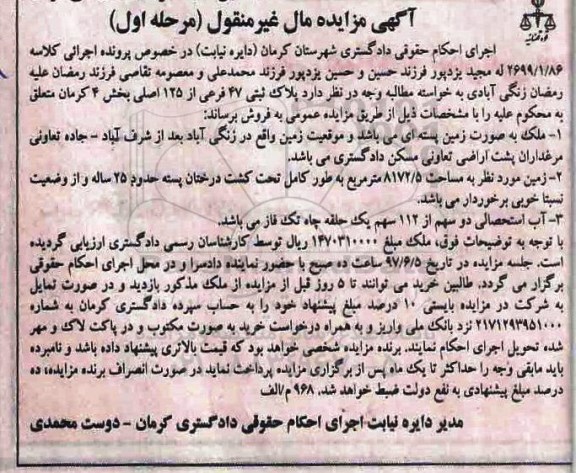 آگهی مزایده مال غیرمنقول (مرحله اول)
اجرای احکام حقوقی دادگستری شهرستان کرمان (دایره نیابت) در خصوص پرونده اجرائی کلاسه
۲۶۹۹/۱/۸۶ له مجید یزدپور فرزند حسین و حسین یزدپور فرزند محمدعلی و معصومه تقاصی فرزند رمضان علیه
رمضان زنگی آبادی به خواسته مطالبه وجه در نظر دارد پلاک ثبتی ۴۷ فرعی از ۱۲۵ اصلی بخش ۴ کرمان متعلق
به محکوم علیه را با مشخصات ذیل از طریق مزایده عمومی به فروش برساند:
۱- ملک به صورت زمین پسته ای می باشد و موقعیت زمین واقع در زنگی آباد بعد از شرف آباد - جاده تعاونی
مرغداران پشت اراضی تعاونی مسکن دادگستری می باشد.
۲- زمین مورد نظر به مساحت ۸۱۷۲/۵ مترمربع به طور کامل تحت کشت درختان پسته حدود ۲۵ ساله و از وضعیت
نسبتا خوبی برخوردار می باشد.
۳- آب استحصالی دو سهم از ۱۱۲ سهم یک حلقه چاه تک فاز می باشد.
با توجه به توضیحات فوق، ملک مبلغ ۱۴۷۰۳۱۰۰۰۰ ریال توسط کارشناسان رسمی دادگستری ارزیابی گردیده
است. جلسه مزایده در تاریخ ۹۷/۶/۵ ساعت ده صبح با حضور نماینده دادسرا و در محل اجرای احکام حقوقی
برگزار می گردد. طالبین خرید می توانند تا ۵ روز قبل از مزایده از ملک مذکور بازدید و در صورت تمایل
به شرکت در مزایده بایستی ۱۰ درصد مبلغ پیشنهاد خود را به حساب سپرده دادگستری کرمان به شماره
۲۱۷۱۲۹۳۹۵۱۰۰۰ نزد بانک ملی واریز و به همراه درخواست خرید به صورت مکتوب و در پاکت لاک و مهر
شده تحویل اجرای احکام نمایند. برنده مزایده شخصی خواهد بود که قیمت بالاتری پیشنهاد داده باشد و نامبرده
باید مابقی وجه را حداکثر تا یک ماه پس از برگزاری مزایده پرداخت نماید در صورت انصراف برنده مزایده، ده
درصد مبلغ پیشنهادی به نفع دولت ضبط خواهد شد. ۹۶۸ م/الف
مدیر دایره نیابت اجرای احکام حقوقی دادگستری کرمان - دوست محمدی